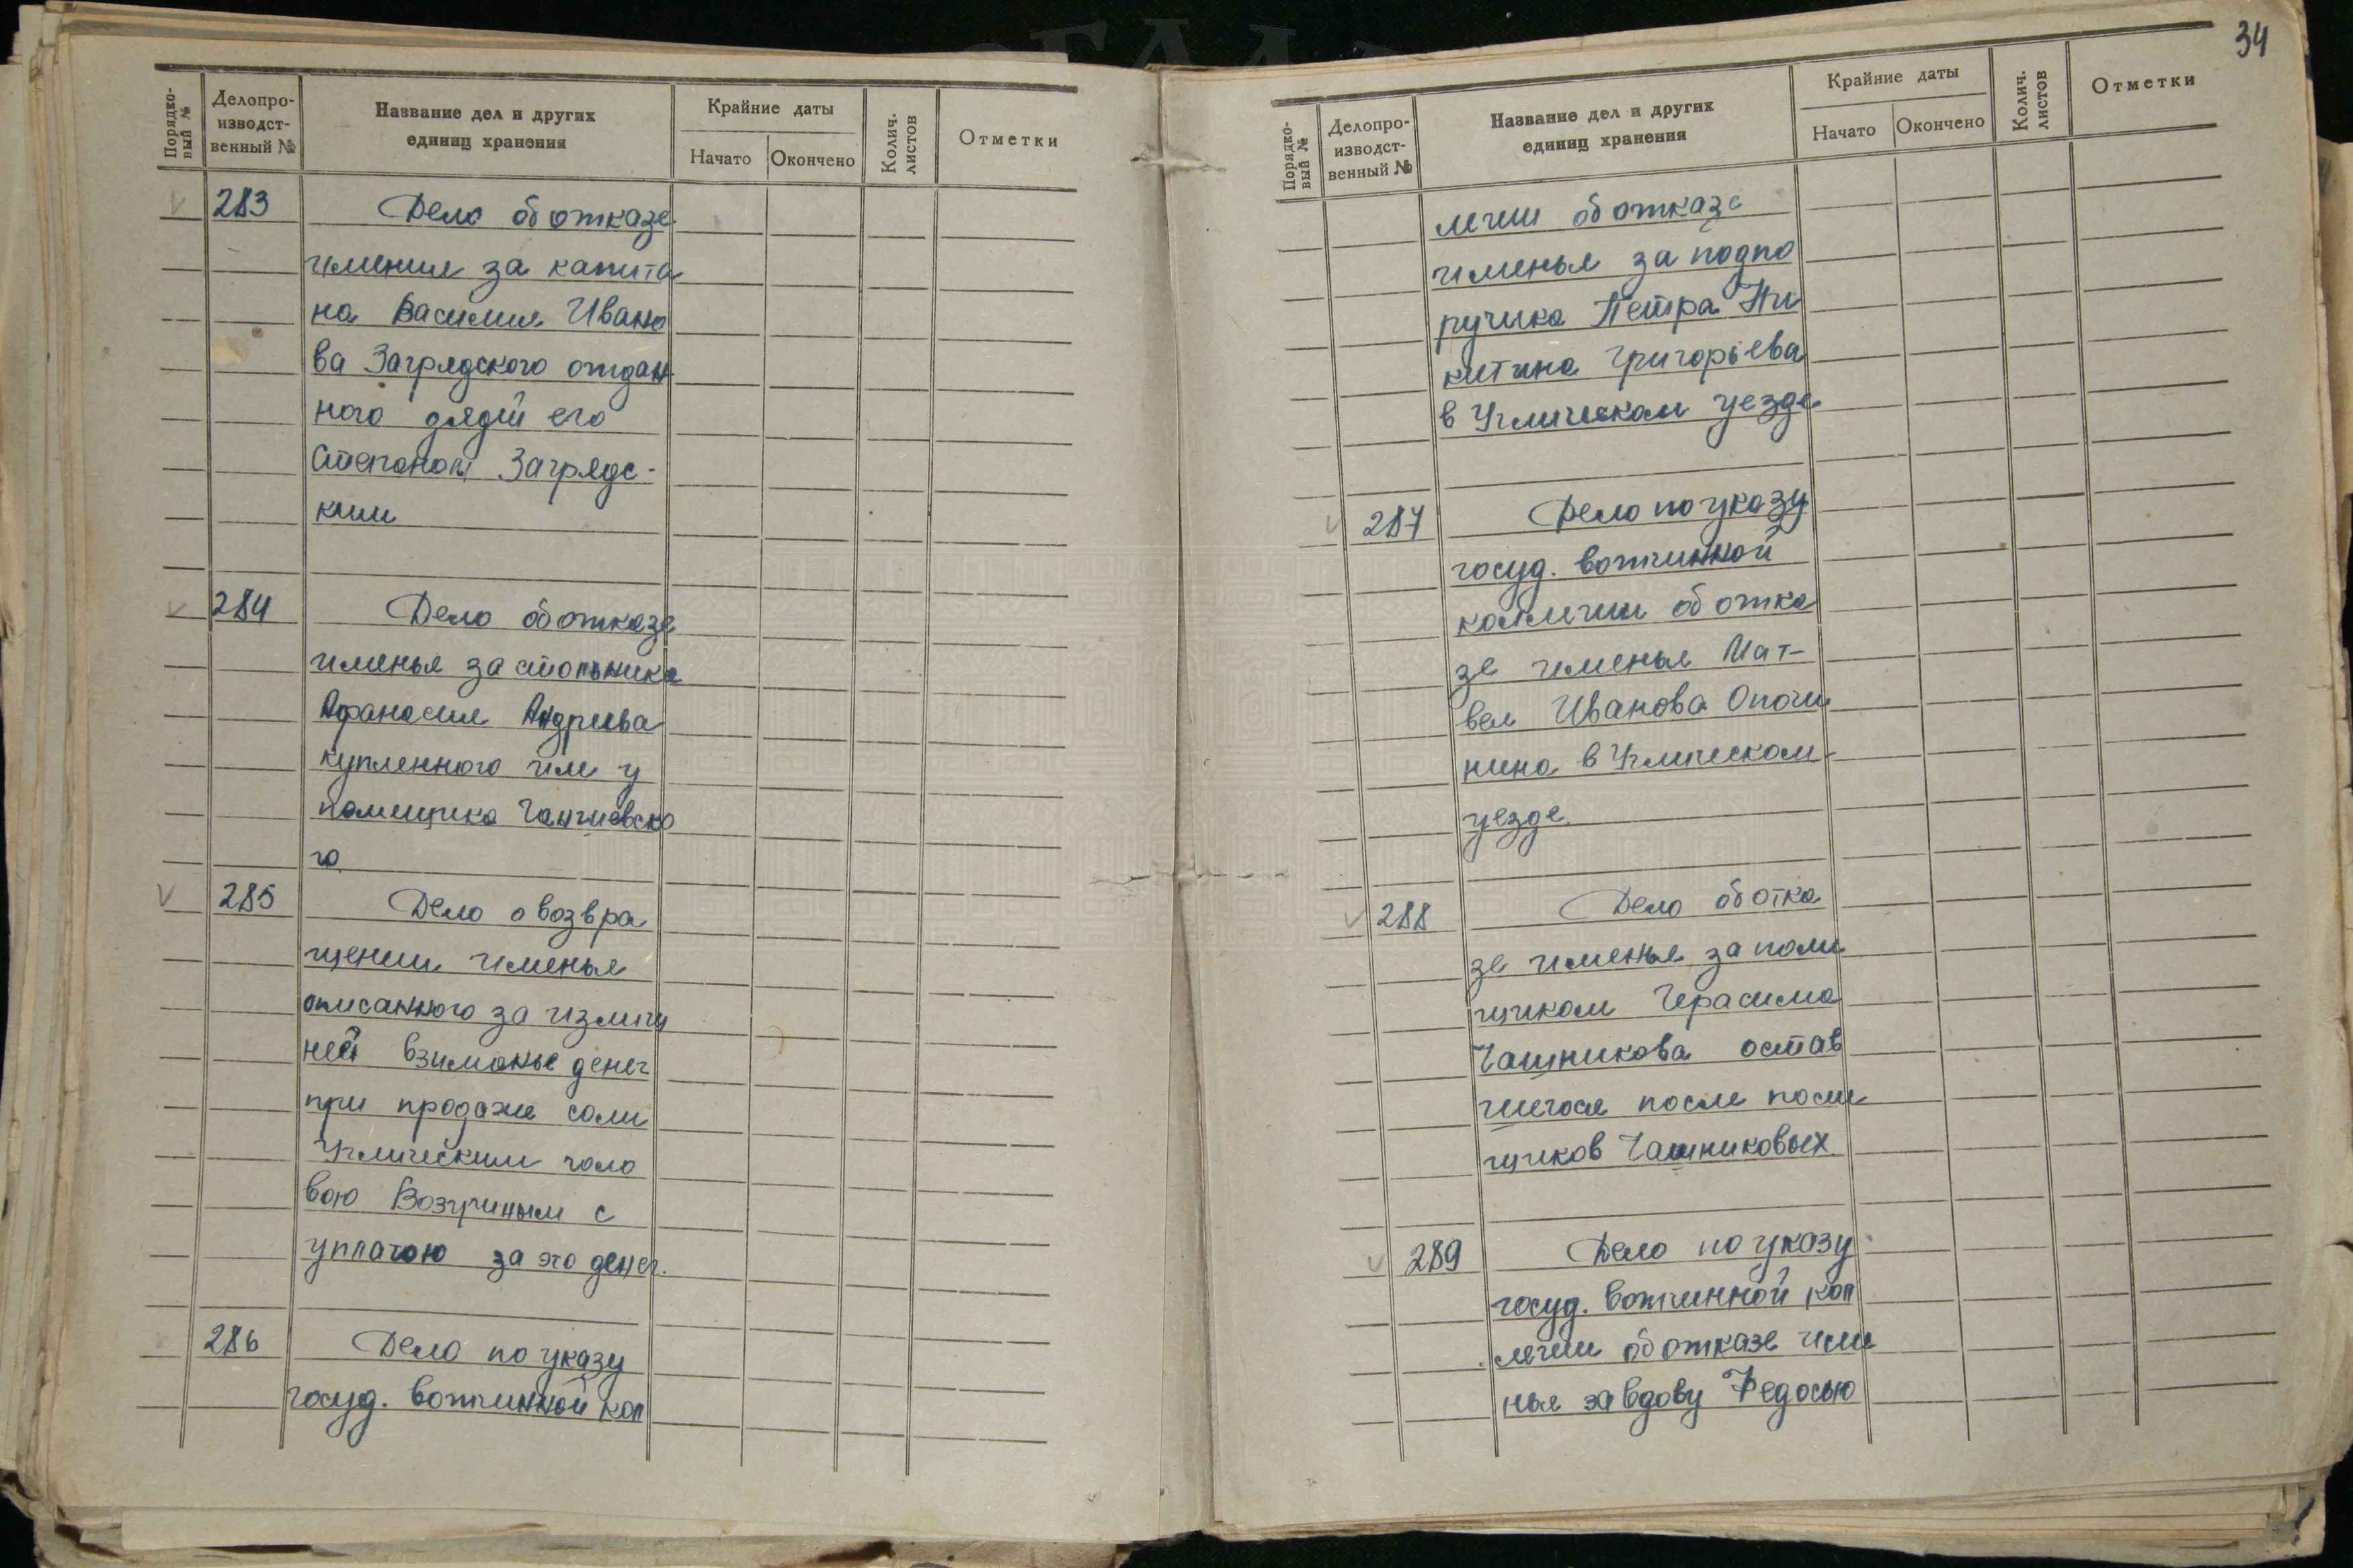 Порядко-
вый №
Делопро-
изводст-
венный №
Название дел и других
единиц хранения
Крайние даты
Начато
Окончено
Колич.
листов
Отметки
283 Дело об отказе
имения за капита
на Василия Ивано
ва Загрядского отдан
ного дядей его
Степаном Загрядс-
ким
284 Дело об отказе
именья за стольника
Афанасия Андриева
купленного им у
помещика
го
285 Дело о возвра
щении именья
описанного за излиш
ней взиманье денег
при продаже соли
Угличским голо
вою Возгриным с
уплатою за это денег.
286 Дело по указу
госуд. вотчинной кол
34
Порядко-
вый №
Делопро-
изводст-
венный №
Название дел и других
единиц хранения
Крайние даты
Начато
Окончено
Колич.
листов
Отметки
легии об отказе
именья за подпо
ручика Петра Ни
китина Григорьева
в Угличском уезде
287 Дело по указу
госуд. вотчинной
коллегии об отка
зе именья Мат-
вея Иванова Опочи
нина в Угличском
уезде.
288 Дело об отка
зе именья за поме
щиком Герасима
Чашникова остав
шегося после поме
щиков Чашниковых.
289 Дело по указу
госуд. вотчинной кол
легии об отказе име
нья за вдову Федосью